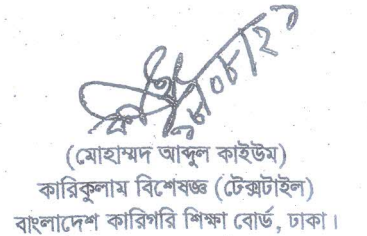 (মোহাম্মদ আব্দুল কাইউম)
কারিকুলাম বিশেষজ্ঞ (টেক্সটাইল)
বাংলাদেশ কারিগরি শিক্ষা বোর্ড, ঢাকা।